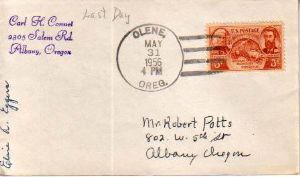 Last Day
Carl H. Connet
2305 Salem Rd.
Albany, Oregon
OLENE,
MAY
31
1956
4 PM
OREG.
U.S. POSTAGE
3¢
Mr. Robert Potts
802 W. 5th St
Albany Oregon